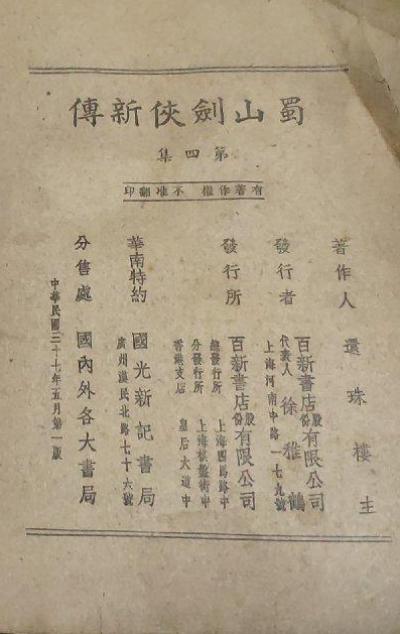 蜀山劍俠新傳
第四集
有著作權　不准翻印
著作人　還珠樓主
發行者　百新書店股份有限公司
代表人　徐雅鶴
上海河南中路一七九號
發行所　百新書店股份有限公司
總發行所　上海四馬路中
分發行所　上海棋盤街中
香港支店　皇后大道中
華南特約　國光新記書局
廣州漢民北路七十六號
分售處　國內外各大書局
中華民國三十七年五月第一版